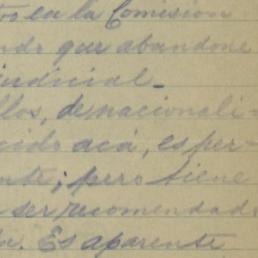 tos en la Comisión
ndo que abandone
judicial.
llos, de nacionali-
cido acá, es per-
nte; pero tiene
ser recomendado
Es aparente